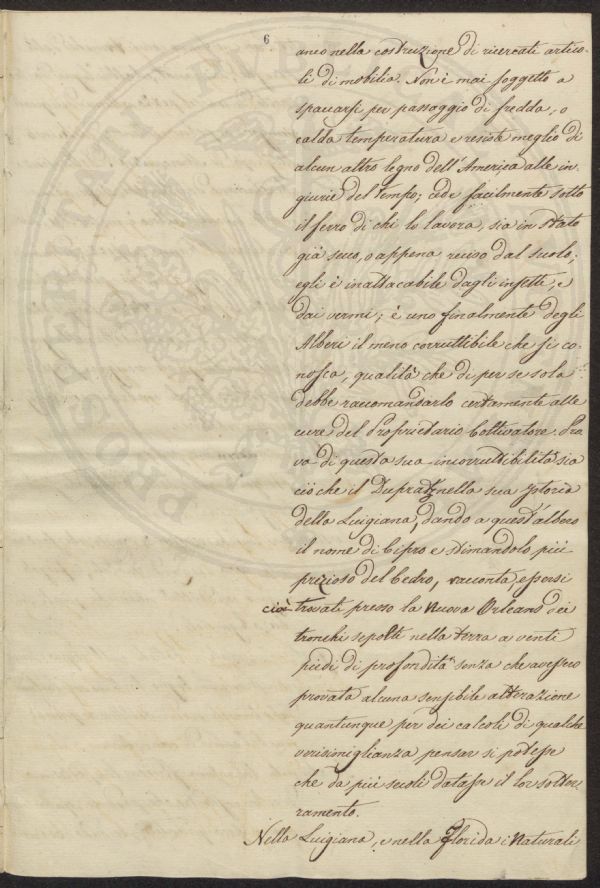 6
anco nella costruzione di ricercati artico-
li di mobilia. Non è mai soggetto a
spaccarsi per passaggio di fredda, o
calda temperatura e resiste meglio di
alcun altro legno dell'America alle in-
giurie del tempo; cede facilmente sotto
il ferro di chi lo lavora, sia in stato
già secco, o appena reciso dal suolo;
egli è inattaccabile dagli insetti, e
dai vermi; è uno finalmente degli
Alberi il meno corruttibile che si co-
nosca, qualità che di per se sola
debbe raccomandarlo certamente alle
cure del Proprietario Coltivatore. Pro-
va di questa sua incorruttibilità sia
ciò che il Dupratz nella sua Istoria
della Luigiana, dando a quest'albero
il nome di Cipro e stimandolo più
prezioso del Cedro, racconta, essersi
cioè trovati presso la Nuova Orleans dei
tronchi sepolti nella terra a venti
piedi di profondità senza che avessero
provata alcuna sensibile alterazione
quantunque per dei calcoli di qualche
verisimiglianza pensar si potesse
che da più secoli datasse il lor sotter-
ramento.
Nella Luigiana, e nella Florida i Naturali
PROSPERITATI PVBL